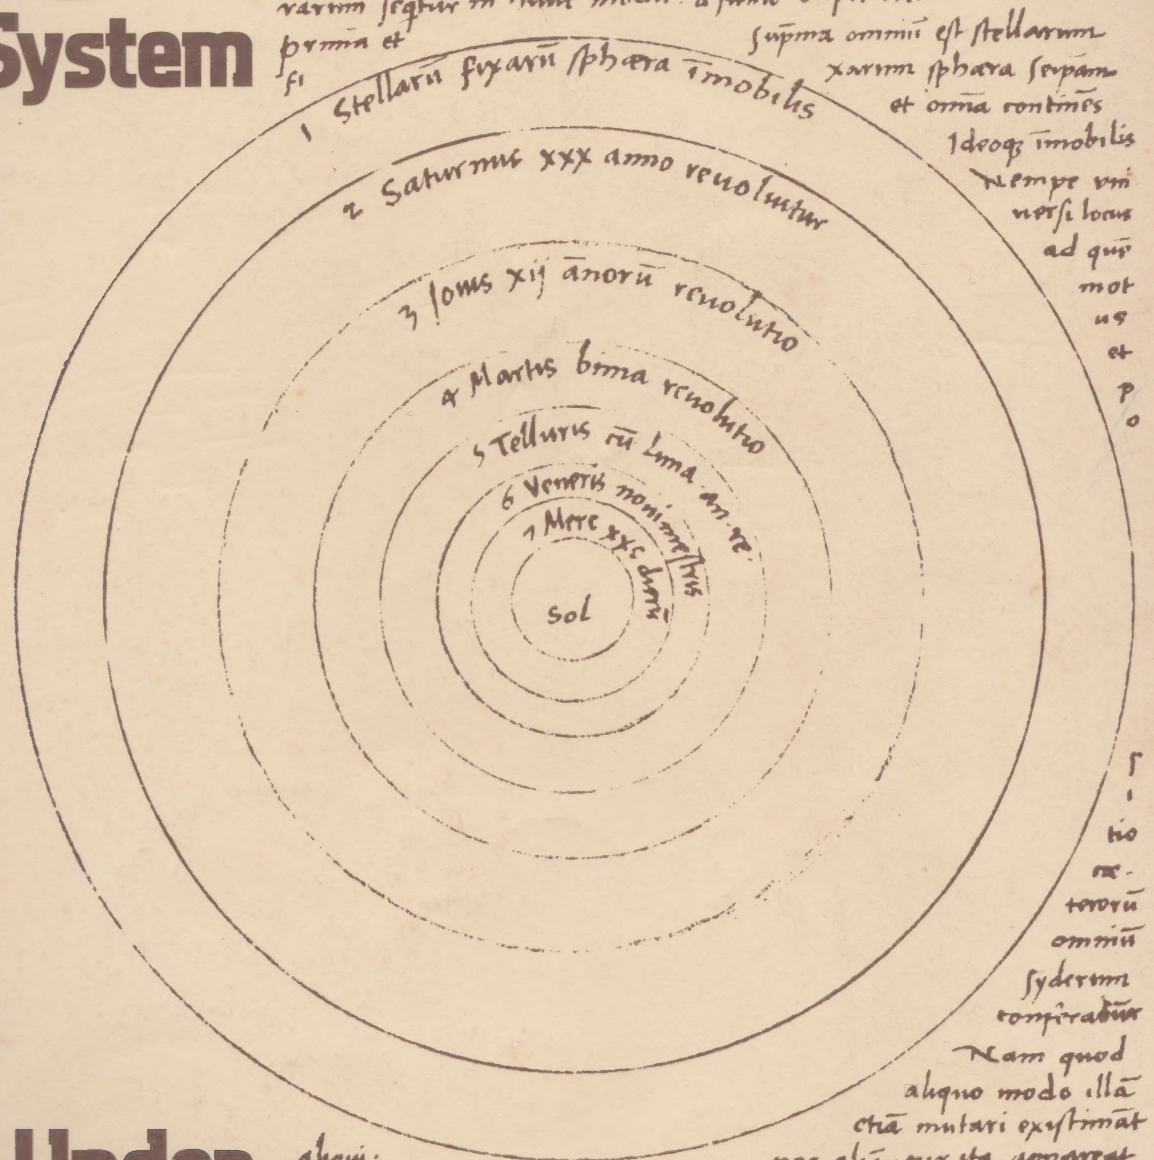 System
prima et
fi
Sup̄ma omniū est stellarum
xarum sphæra seipām
et omīa continēs
Ideoqꝫ īmobilis
Nempe vni
versi locus
ad quē
mot
us
et
p
o
1 Stellarū fixarū sphæra īmobilis
2 Saturnus xxx anno reuoluitur
3 Iouis xij ānorū reuolutio
4 Martis bima reuolutio
5 Telluris cū Luna an. re.
6 Veneris nonimestris
7 Merc xxc dierū
Sol
s
i
tio
cæ-
terorū
omniū
syderum
conferatur
Nam quod
aliquo modo illā
etiā mutari existimāt
Under
aliqui.